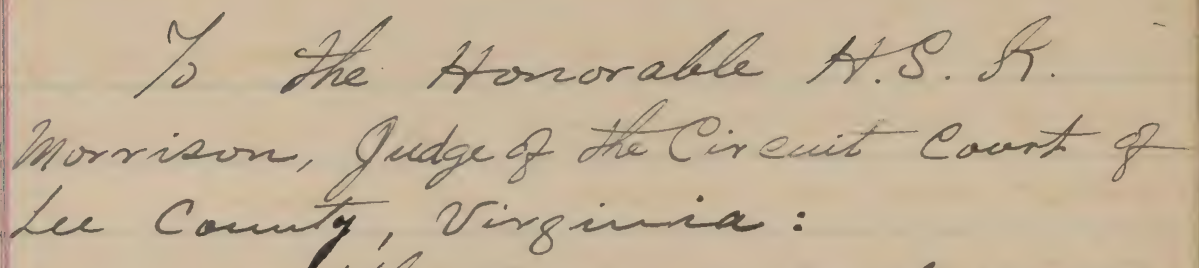 To the Honorable H.S.K.
Morrison, Judge of the Circuit Court of
Lee County, Virginia: